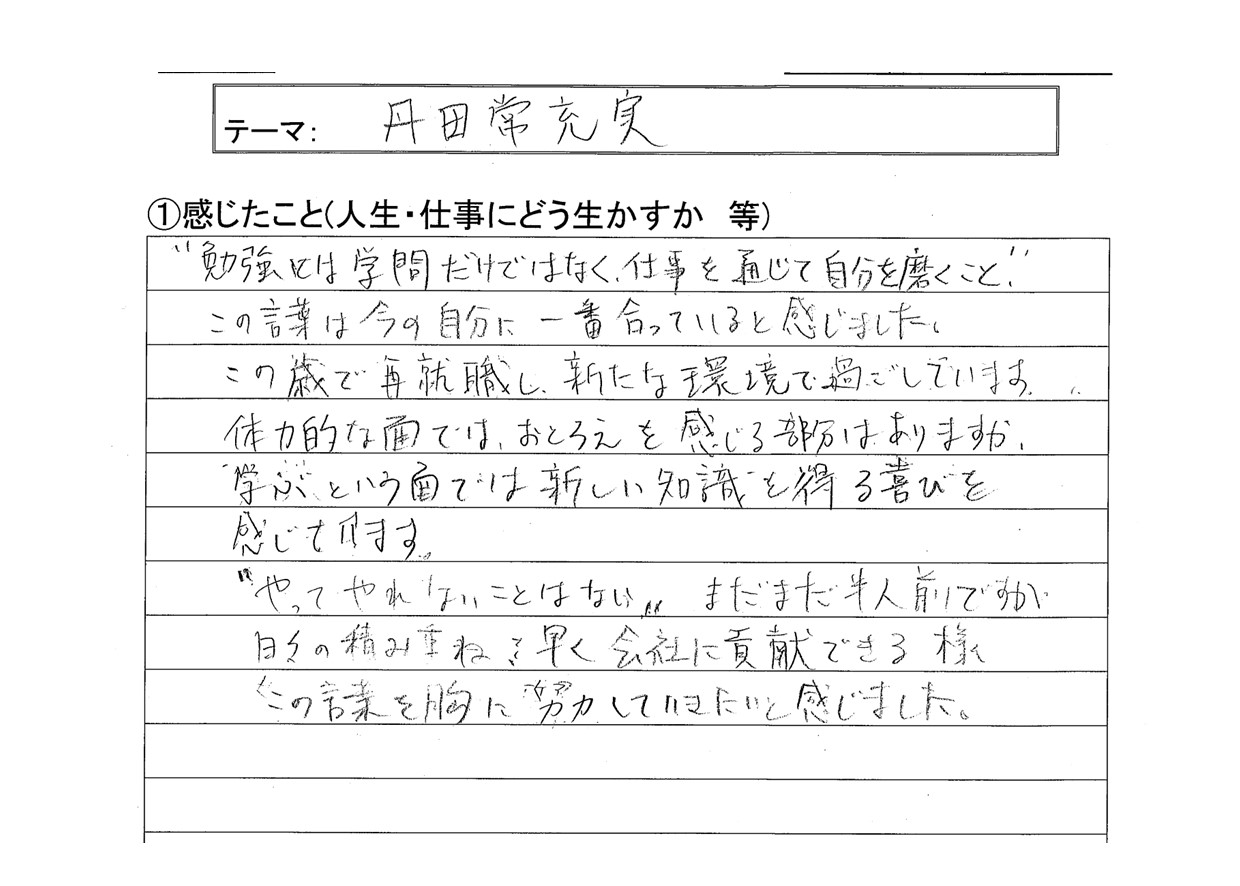 テーマ: 丹田常充実
①感じたこと(人生・仕事にどう生かすか 等)
"勉強とは学問だけではなく、仕事を通じて自分を磨くこと、"
この言葉は今の自分に一番合っていると感じました。
この歳で再就職し、新たな環境で過ごしています。
体力的な面では、おとろえを感じる部分はありますが、
"学ぶ"という面では新しい知識を得る喜びを
感じています。
"やってやれないことはない" まだまだ半人前ですが
日々の積み重ね 早く会社に貢献できる様
この言葉を胸に努力していきたいと感じました。